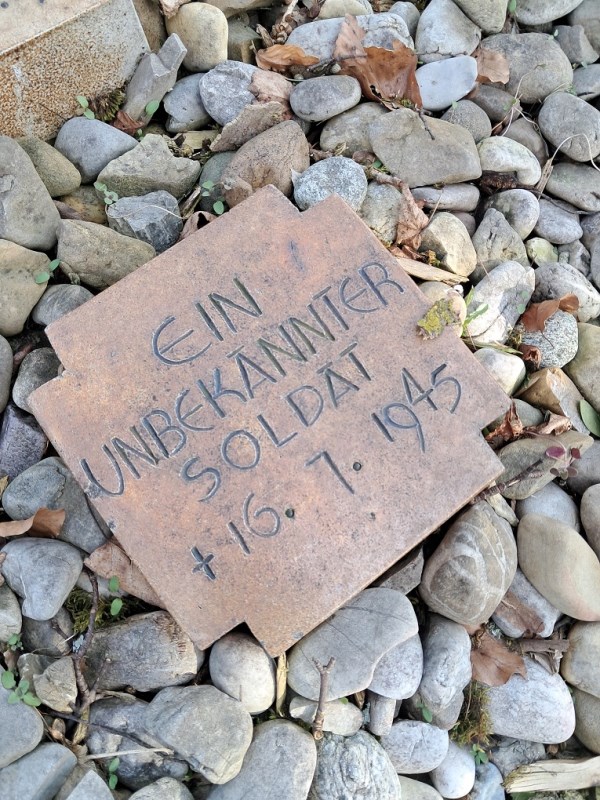 EIN
UNBEKANNTER
SOLDAT
+ 16. 7. 1945